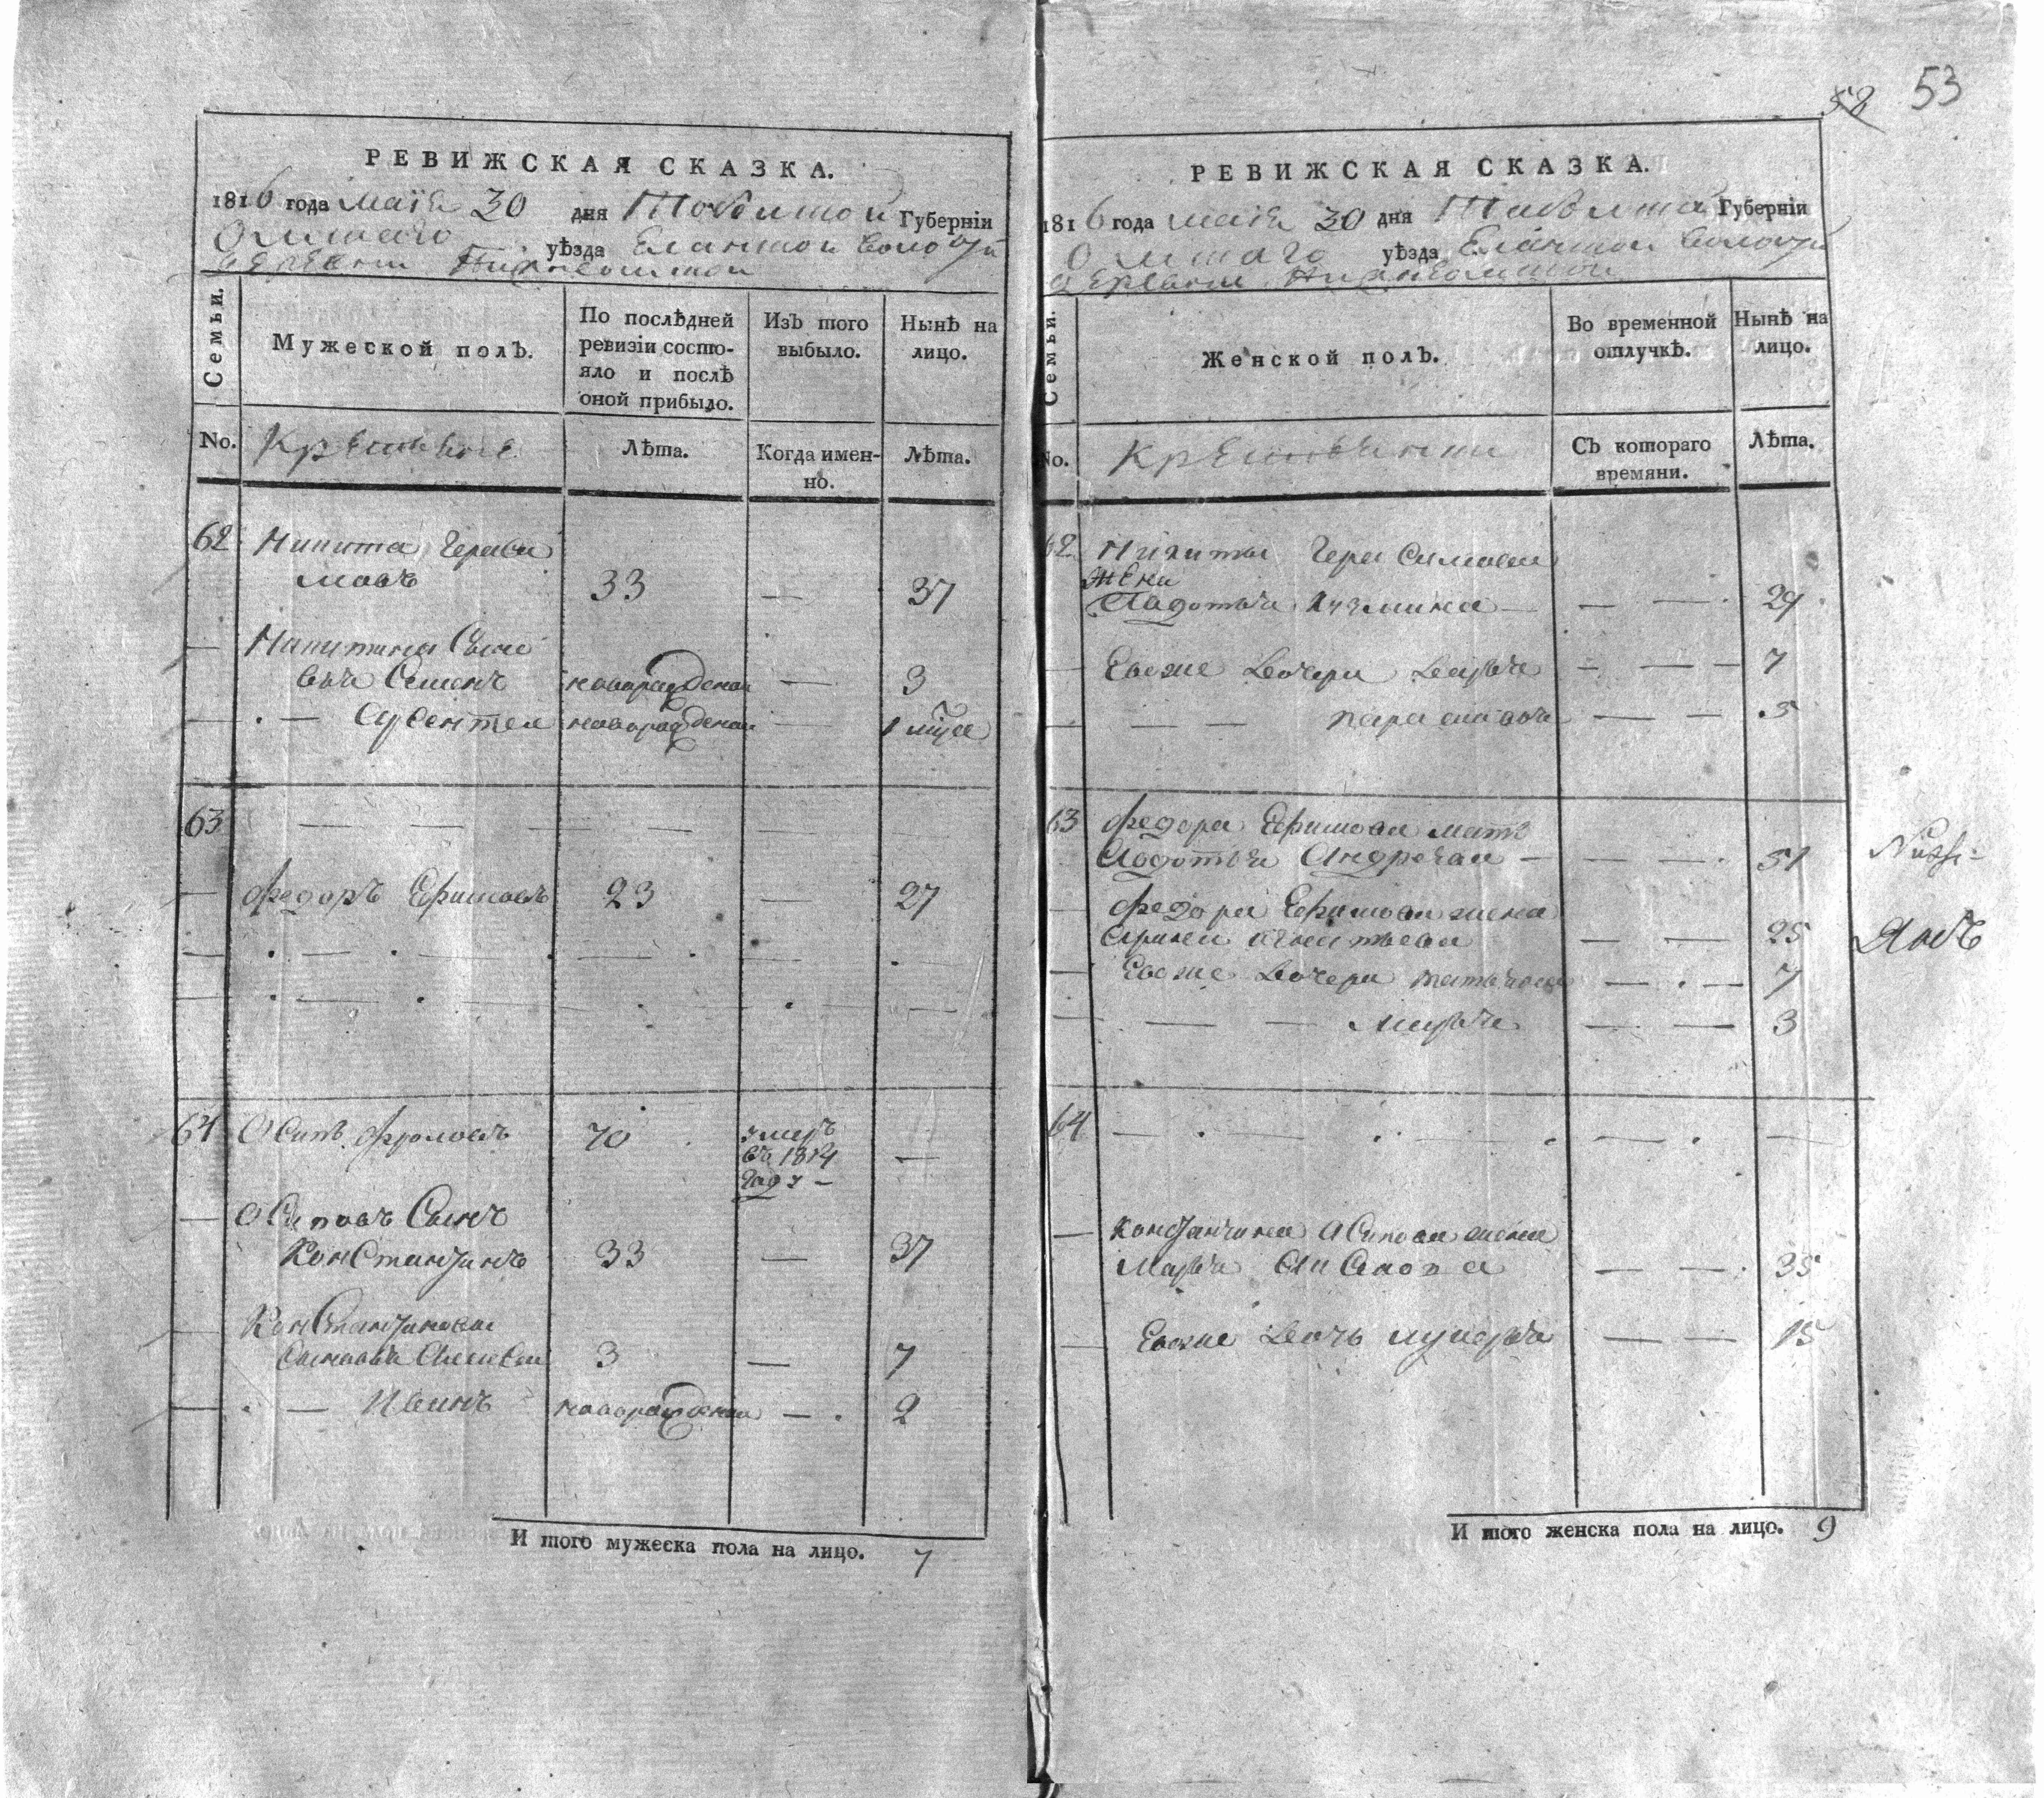 53
58
РЕВИЖСКАЯ СКАЗКА.
1816 года маiя 30 дня Тобольской Губернiи
Омского уѣзда Еланской волости
деревни
Семьи.
Мужеской полъ.
По послѣдней ревизiи состо-
яло и послѣ оной прибыло.
Изъ того выбыло.
Нынѣ на лицо.
No.
Крестьяне
Лѣта.
Когда имен-
но.
Лѣта.
62 Никита Гераси
мовъ 33 — 37
— Никитины Сыно
вья Семенъ новорожденой — 3
— · — новорожденой — 1 мѣся
63 — — — — — — —
— Федоръ Ефимовъ 23 — 27
64 Осипъ Фроловъ 70 умеръ
въ 1814
году — —
— Осиповъ Сынъ
Константинъ 33 — 37
Константиновы
Сыновья Алексей 3 — 7
— · — Иванъ новорожденой — · 2
И того мужеска пола на лицо. 7
РЕВИЖСКАЯ СКАЗКА.
1816 года маiя 30 дня Тобольской Губернiи
Омского уѣзда Еланской волости
деревни
Семьи.
Женской полъ.
Во временной
отлучкѣ.
Нынѣ на
лицо.
No.
Крестьянки
Съ котораго
времяни.
Лѣта.
62 Никиты Герасимова
жена
Авдотья Кузмина — — — 29
— Евоже дочери Дарья — — — 7
— — — Парасковья — — 5
63 Федора Ефимова мать
Авдотья Андреева — — — 51
— Федора Ефимова жена
Арина Игнатьева — — 25
— Евоже дочери Татьяна — · — 7
— — — Марья — — 3
64 — · · · — · —
— Константина Осипова жена
Марья — — 35
— Евоже дочь Лукерья — — 15
И того женска пола на лицо. 9